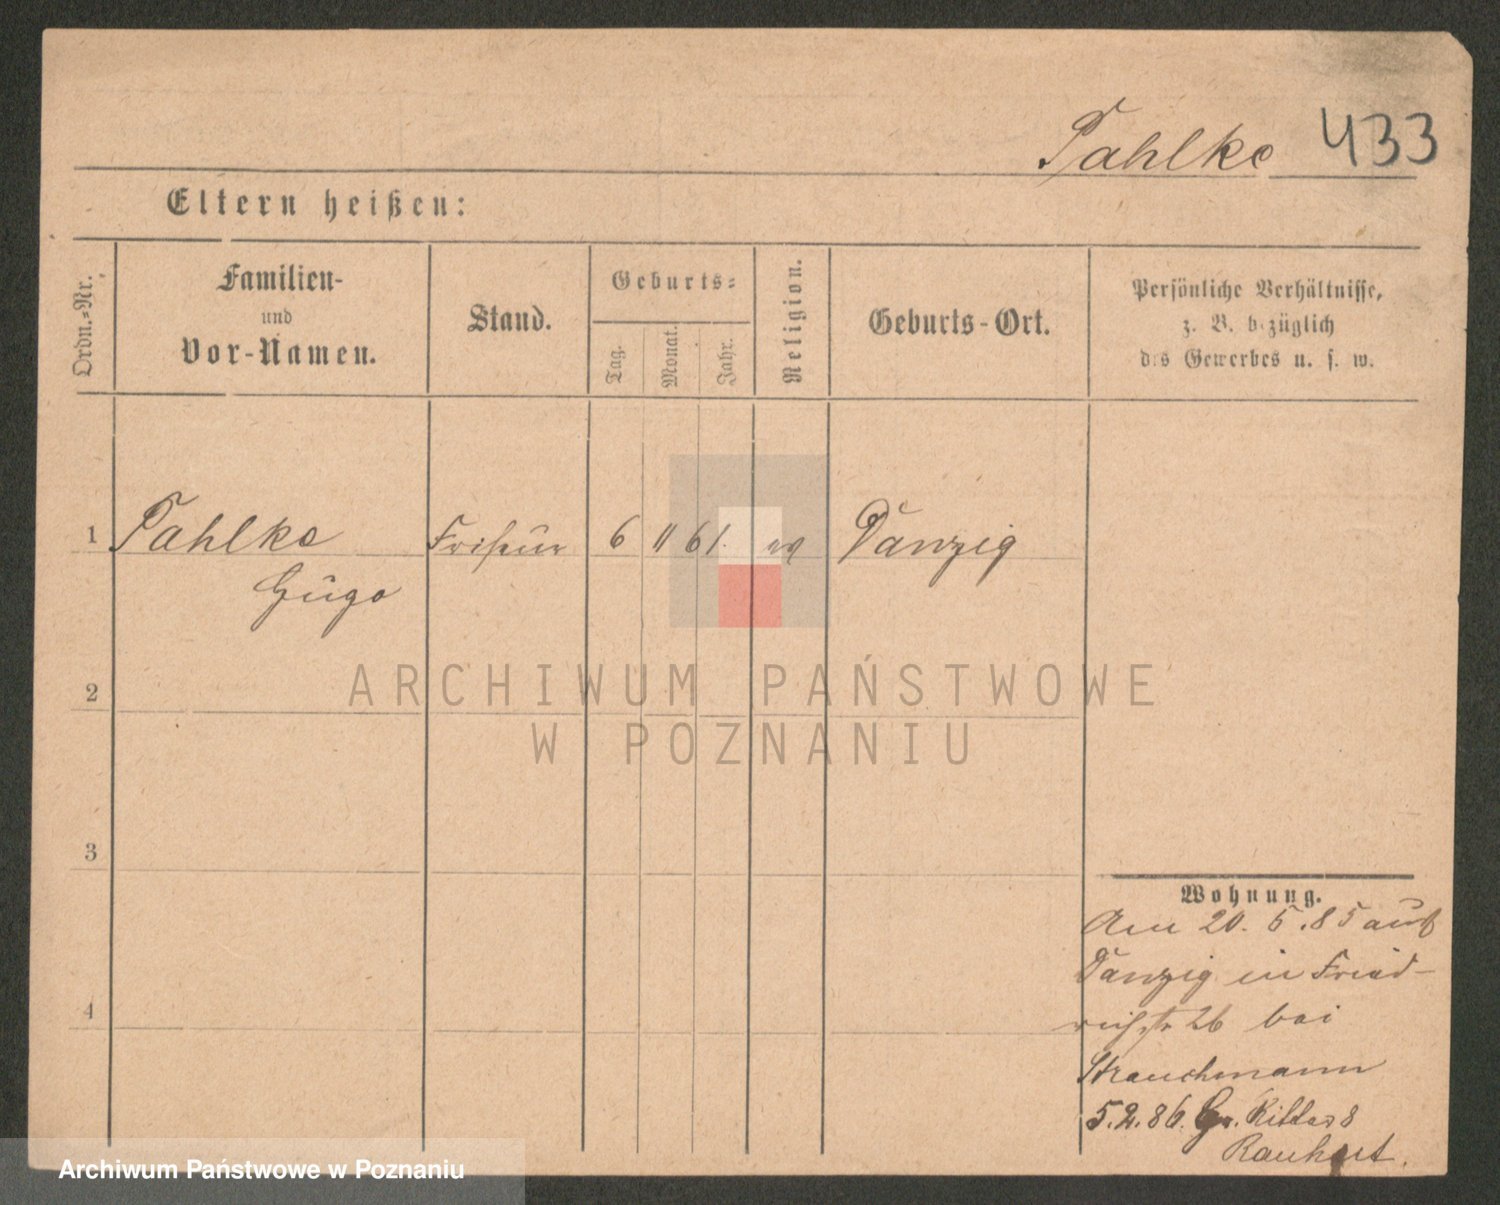 Pahlke 433
Eltern heißen:
Ordn.=Nr.
Familien-
und
Vor-Namen.
Stand.
Geburts=
Tag.
Monat.
Jahr.
Religion.
Geburts-Ort.
Persönliche Verhältnisse,
z. B. bezüglich
des Gewerbes u. s. w.
1 Pahlke Friseur 6 11 61. ev Danzig
Hugo
2
ARCHIWUM PAŃSTWOWE
W POZNANIU
3
4
Wohnung.
Am 20. 5. 85 aus
Danzig in Fried-
richstr 26 bei
Strauchmann
5.2.86. Gr. Ritter 8
Archiwum Państwowe w Poznaniu